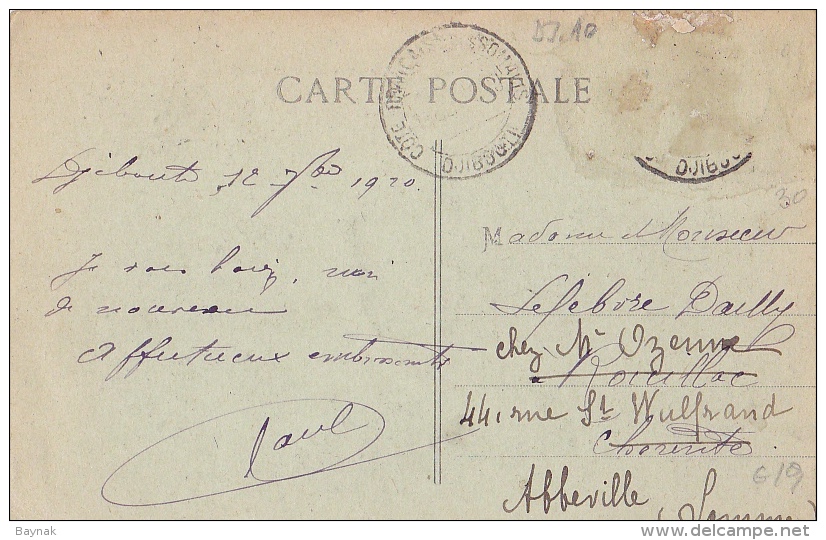 DJ.10
CARTE POSTALE
COTE FRANÇAISE DES SOMALIS
DJIBOUTI
DJIBOU
Djibouti, 12 7bre 1920.
30
Madame Monsieur
Je vous , rien
de nouveau
Affectueux embrassements
Paul
Lefebvre Dailly
chez Mr Ozenne
Rouillac
44, rue St Wulfrand
Charente
Abbeville
(Somme
6/9
Baynak
delcampe.net